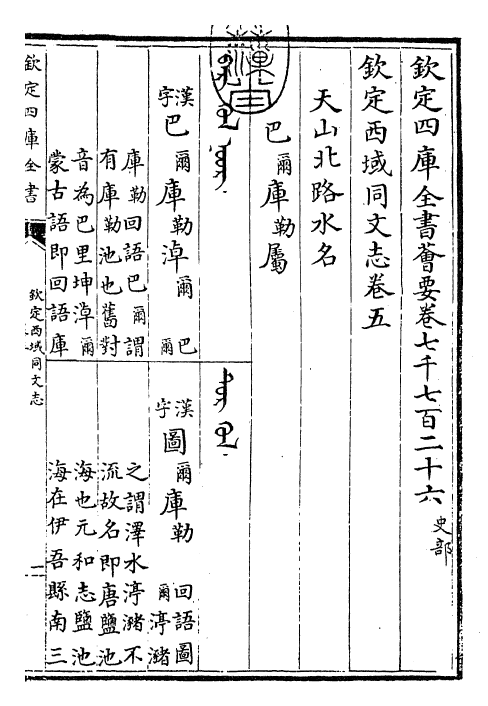 欽定四庫全書薈要卷七千七百二十六 史部
欽定西域同文志卷五
天山北路水名
巴爾庫勒屬
漢字 巴爾庫勒淖爾 巴爾
庫勒回語巴爾謂
有庫勒池也舊對
音為巴里坤淖爾
蒙古語即回語庫
漢字 圖爾庫勒 回語圖
爾渟瀦
之謂澤水渟瀦不
流故名即唐鹽池
海也元和志鹽池
海在伊吾縣南三
欽定四庫全書
欽定西域同文志